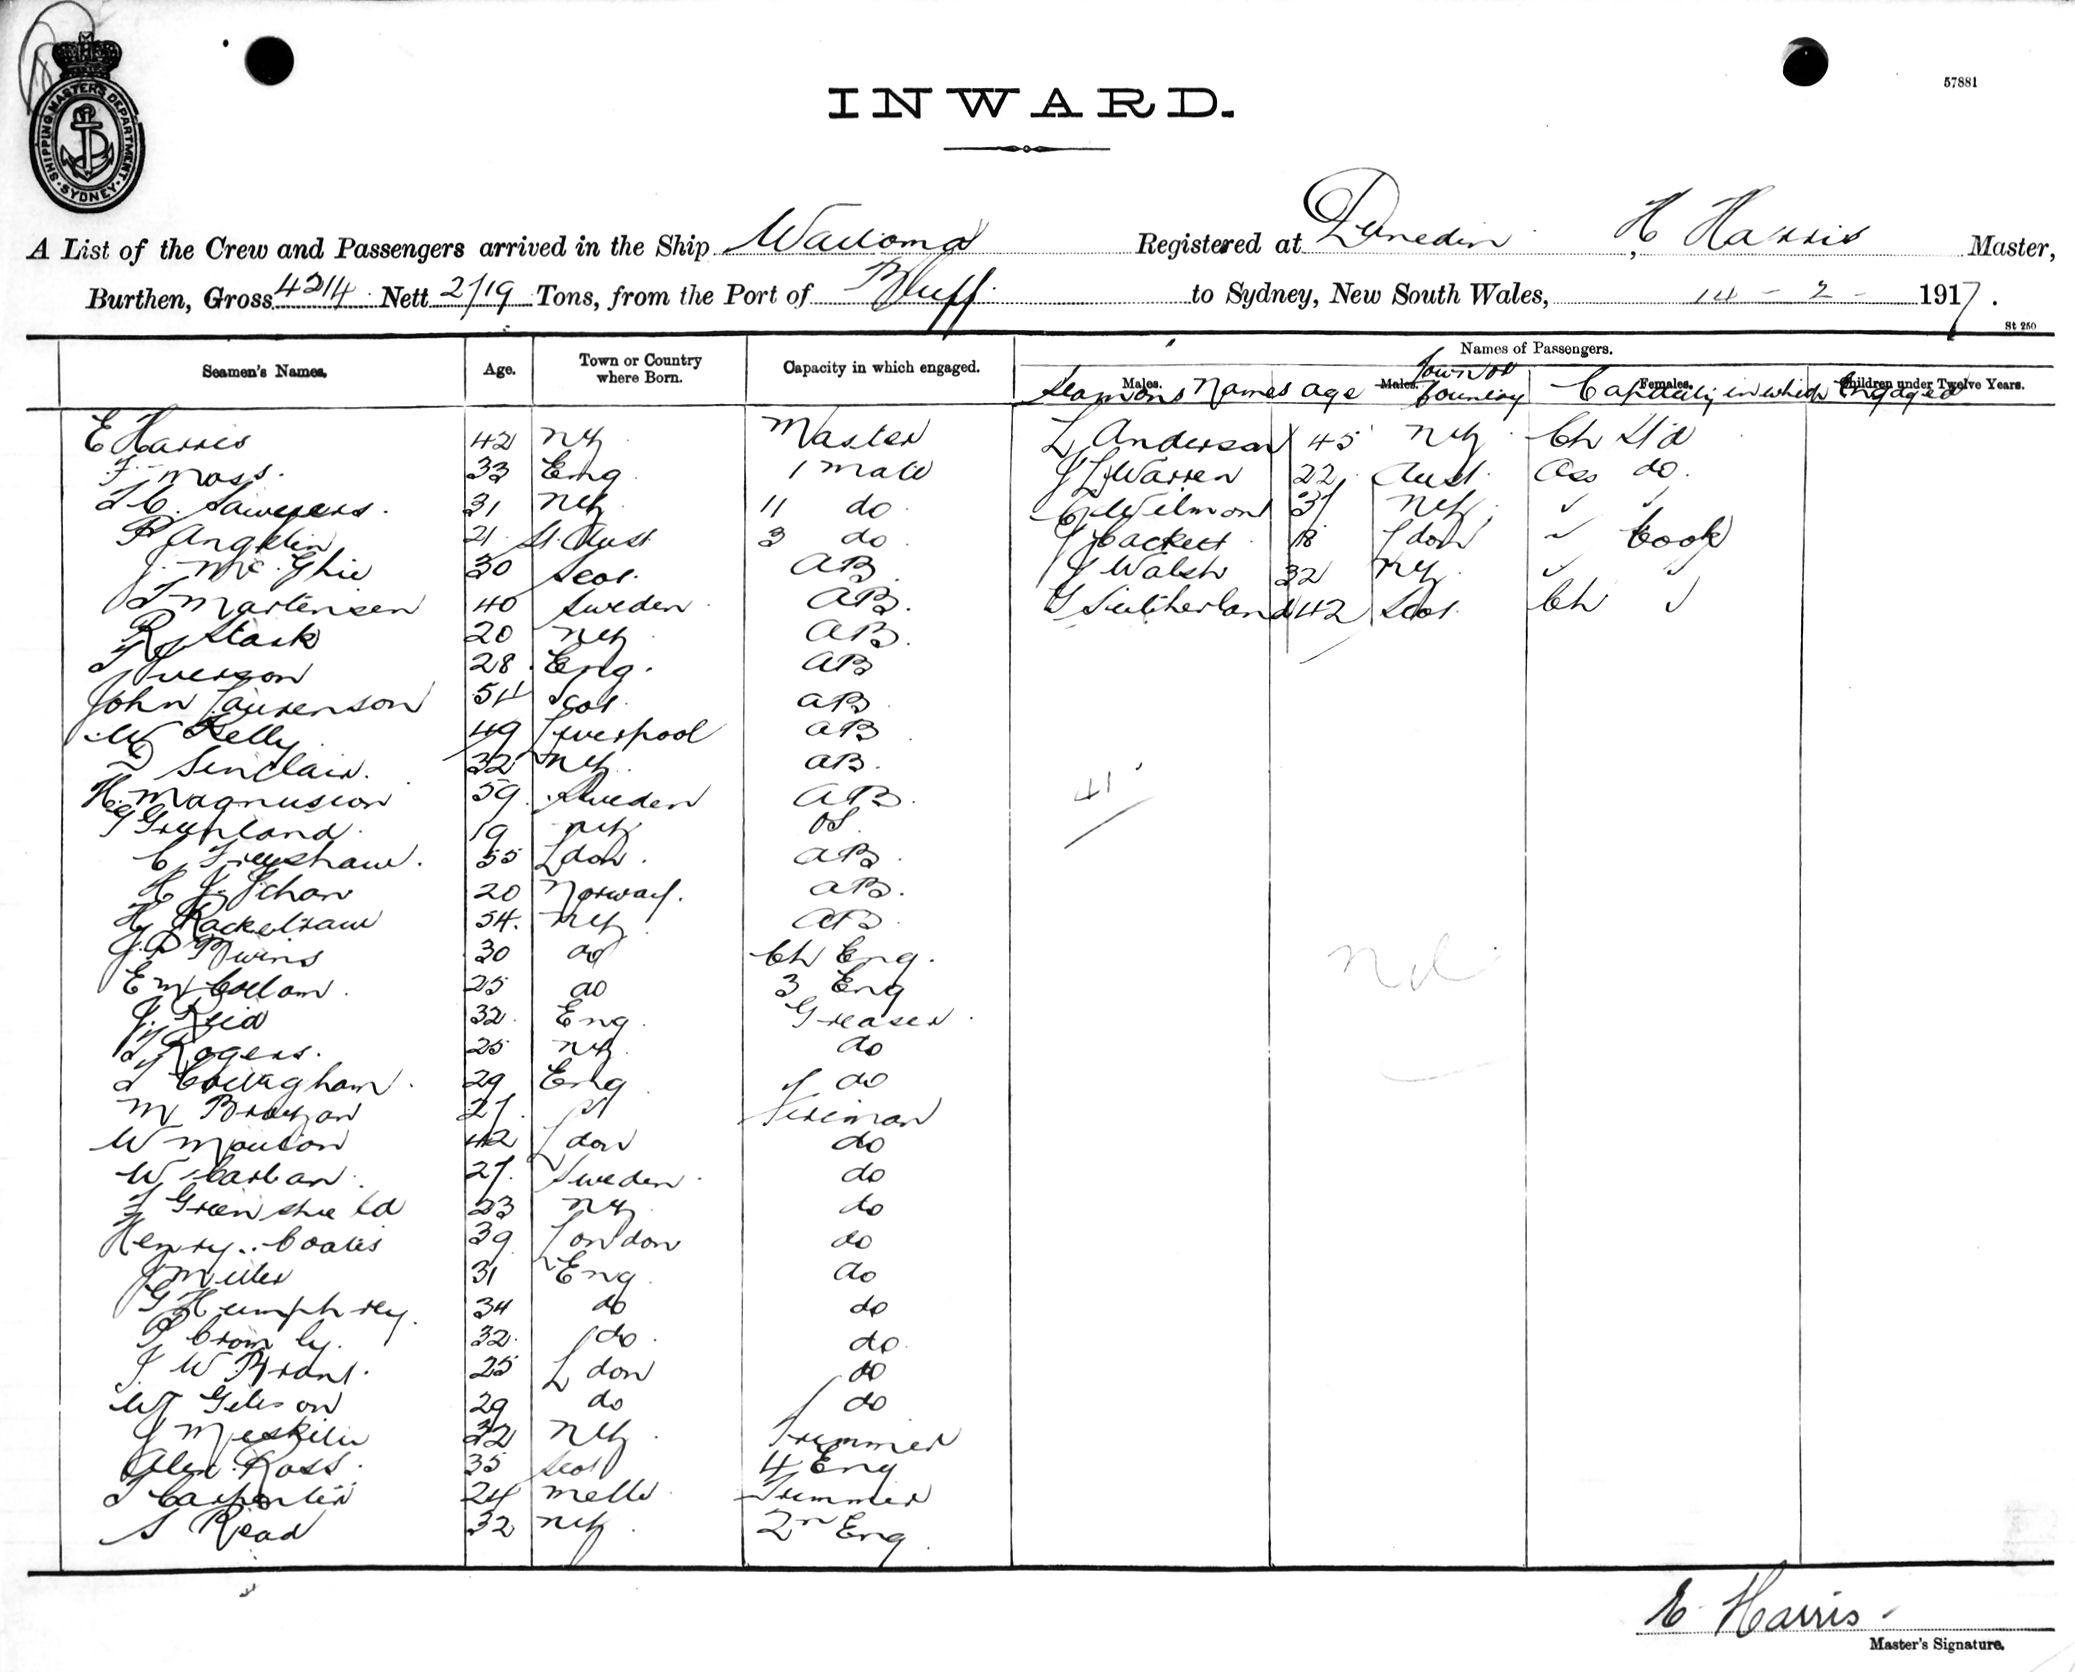 SHIPPING MASTER'S DEPARTMENT
SYDNEY
57881
INWARD.
A List of the Crew and Passengers arrived in the Ship Waitomo Registered at Dunedin, H Harris Master,
Burthen, Gross 4214 Nett 2719 Tons, from the Port of Bluff to Sydney, New South Wales, 14 - 2 - 1917.
St 250
Seamen's Names. Age. Town or Country where Born. Capacity in which engaged. Names of Passengers.
Males. Males. Females. Children under Twelve Years.
Seamens Names age Town or Country Capacity in which Engaged
E Harris 42 NZ Master L Anderson 45 NZ Ch St'd
F Moss. 33 Eng. 1 Mate J L Warren 22 Aust. Ass do.
31 NZ 11 do C Wilmont 37 NZ " "
P Anglin 21 St Aust 3 do J Hackett 18 Ldon " Cook
J. McGhie 30 Scot. AB J Walsh 32 NZ " "
T Martensen 40 Sweden AB. G Sutherland 42 Scot. Ch "
R Stark 20 NZ AB.
T Iverson 28 Eng. AB
John Laurenson 54 Scot. AB
W Kelly 49 Liverpool AB
D Sinclair. 32 NZ AB.
H. Magnusson 59 Sweden AB. 41
G Greenland 19 NZ OS.
55 Ldon. AB
20 Norway. AB.
Hy Rackstraw 54. NZ AB
J. D Bwins 30 do Ch Eng.
E McCollam. 25 do 3 Eng Nil
J. Reid 32. Eng. Greaser.
T Rogers. 25 NZ do
T Callagham. 29 Eng do
M 27. Fireman
W Mouton 42 Ldon do
W Carlsan 27. Sweden do
J Greenshield 23 NZ do
Henry Coates 39 London do
J Miller 31 Eng. do
G Humphrey. 34 do do
P Cromly. 32. do. do.
J. W Brant. 25 Ldon do
W Gibson 29 do do
J Meskill 22 NZ Trimmer
Alex. Ross. 35 Scot 4 Eng
T Carpenter 24 Melb. Trimmer
S Read 32 NZ 2nd Eng.
E Harris
Master's Signature.